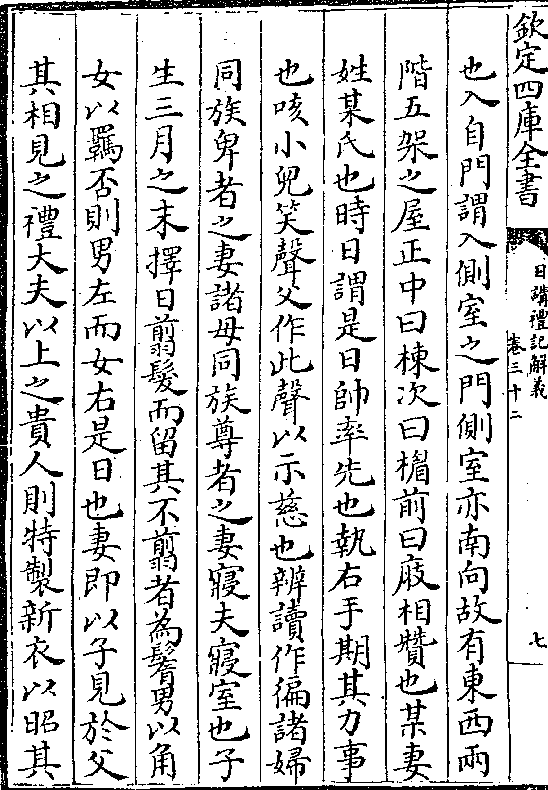 欽定四庫全書
日講禮記解義
卷三十二
七
也入自門謂入側室之門側室亦南向故有東西兩
階五架之屋正中曰棟次曰楣前曰庪相贊也某妻
姓某氏也時日謂是日帥率先也執右手期其力事
也咳小兒笑聲父作此聲以示慈也辨讀作徧諸婦
同族卑者之妻諸母同族尊者之妻寢夫寢室也子
生三月之末擇日翦髮而留其不翦者為鬌男以角
女以羈否則男左而女右是日也妻即以子見於父
其相見之禮大夫以上之貴人則特製新衣以昭其